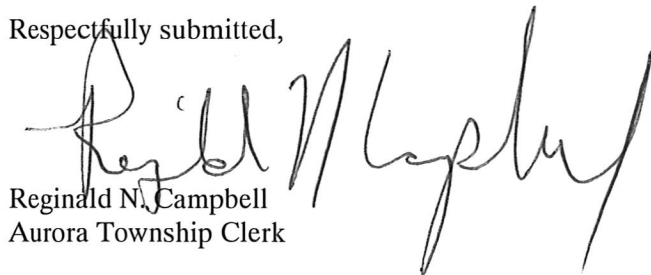 Respectfully submitted,
Reginald N Campbell
Reginald N. Campbell
Aurora Township Clerk